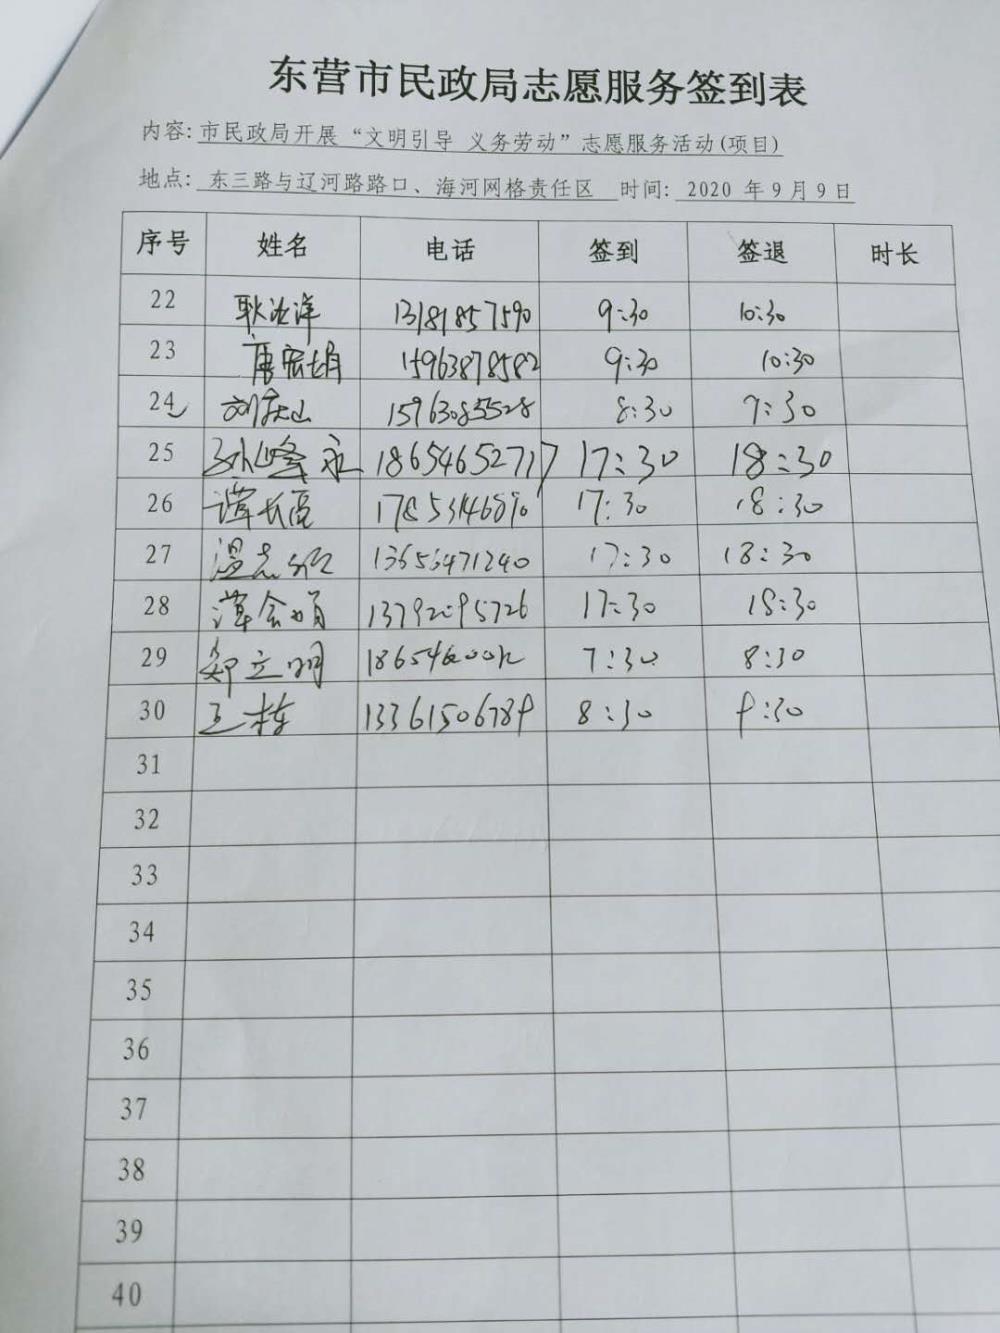 东营市民政局志愿服务签到表
内容: 市民政局开展“文明引导 义务劳动”志愿服务活动(项目)
地点: 东三路与辽河路路口、海河网格责任区 时间: 2020 年9月9日
序号 姓名 电话 签到 签退 时长
22 耿 洋 13181857590 9:30 10:30
23 唐宏娟 15963878582 9:30 10:30
24 刘庆山 15963085528 8:30 9:30
25 孙峰永 18654652717 17:30 18:30
26 谭长亮 17:30 18:30
27 温志 17:30 18:30
28 薄会娟 13792095726 17:30 18:30
29 郑立明 7:30 8:30
30 王栋 13361506789 8:30 9:30
31
32
33
34
35
36
37
38
39
40